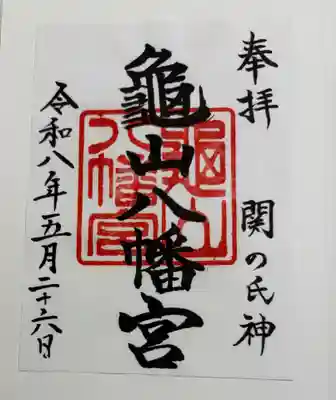 奉拝 関の氏神
龜山八幡宮
龜山八幡宮
令和八年五月二十六日